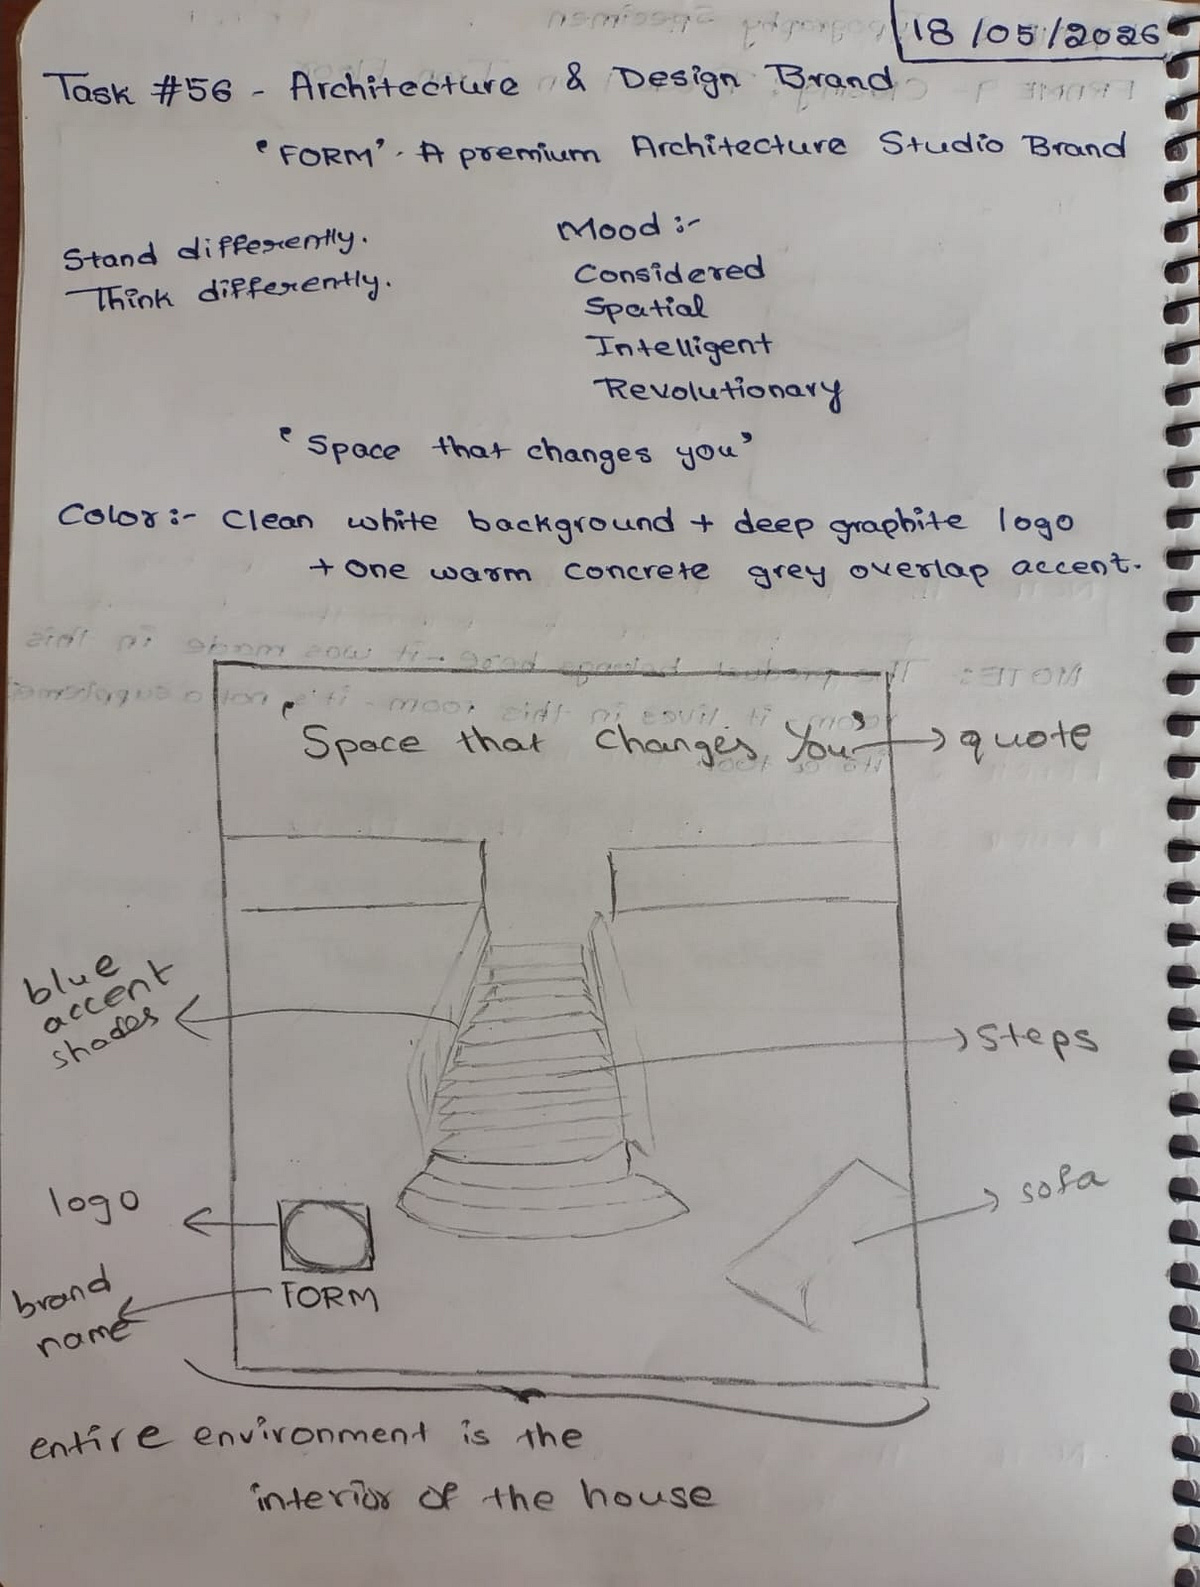 18/05/2026
Task #56 - Architecture & Design Brand
'FORM' - A premium Architecture Studio Brand
Stand differently.
Think differently.
Mood :-
Considered
Spatial
Intelligent
Revolutionary
'Space that changes you'
Color :- Clean white background + deep graphite logo
+ one warm concrete grey overlap accent.
'Space that Changes You'
quote
blue
accent
shades
steps
logo
sofa
brand
name
FORM
entire environment is the
interior of the house